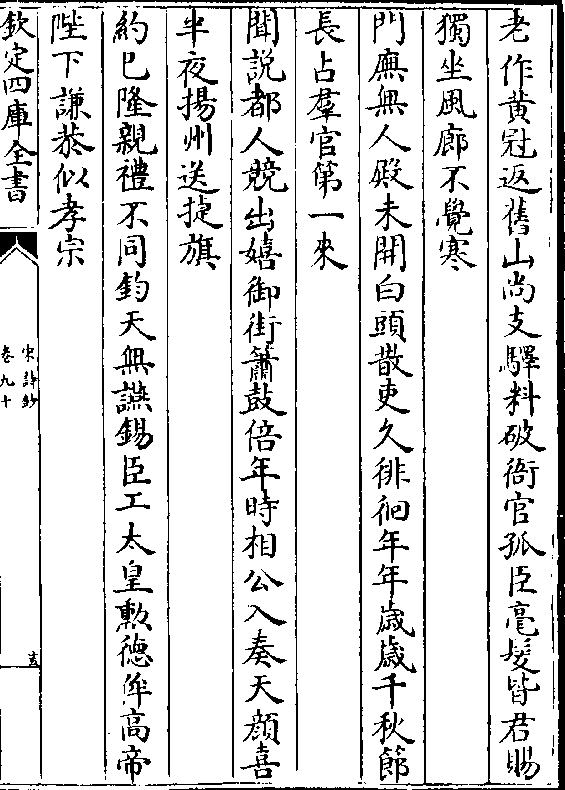 老作黄冠返舊山尚支驛料破衙官孤臣毫髮皆君賜
獨坐風廊不覺寒
門廡無人殿未開白頭散吏久徘徊年年歲歲千秋節
長占羣官第一來
聞說都人競出嬉御街簫鼓倍年時相公入奏天顔喜
半夜揚州送捷旗
約已隆親禮不同鈞天無讌錫臣工太皇勲德侔高帝
陛下謙恭似孝宗
欽定四庫全書
宋詩鈔
卷九十